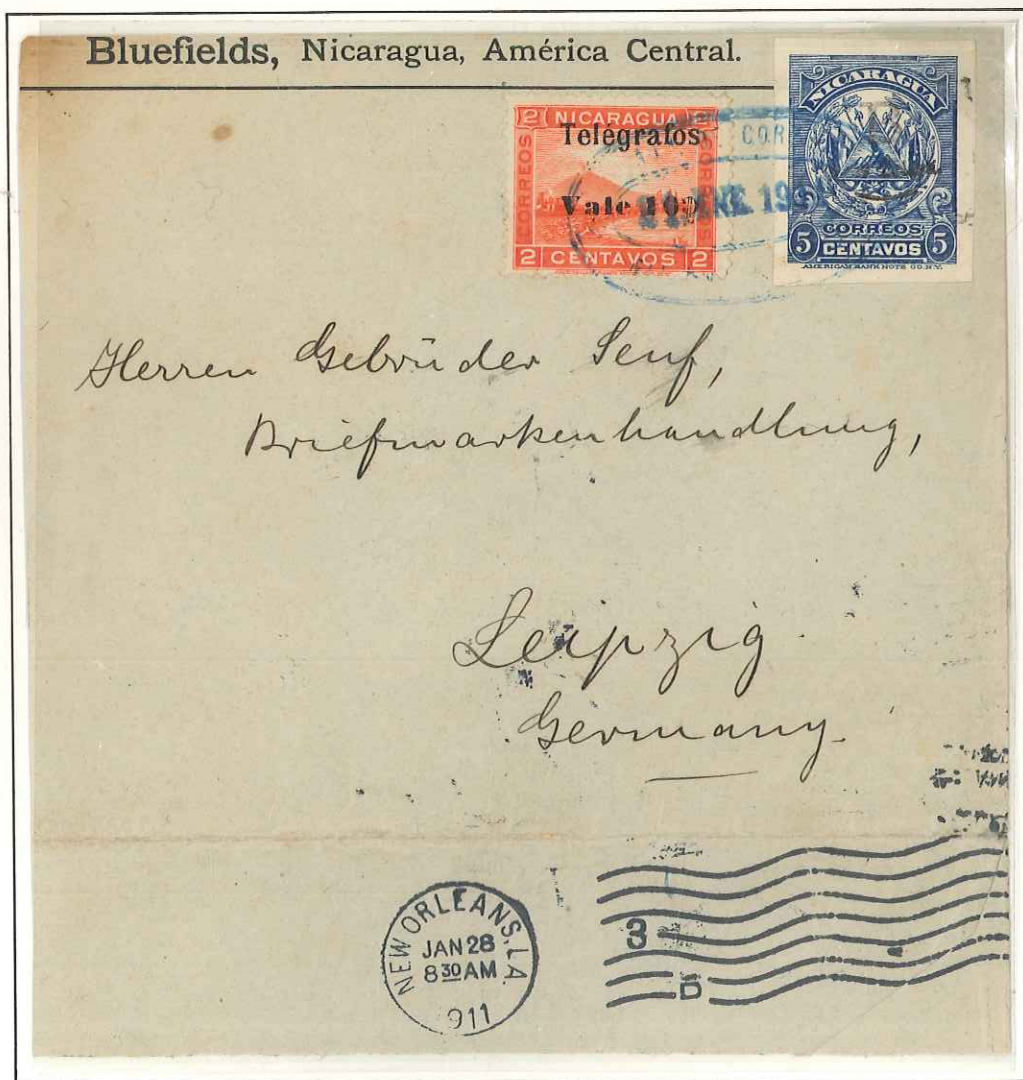 Bluefields, Nicaragua, América Central.
2 NICARAGUA 2
Telégrafos
CORREOS
CORREOS
Vale 10
2 CENTAVOS 2
COR
ENE. 19
NICARAGUA
CORREOS
5 CENTAVOS 5
AMERICAN BANK NOTE CO. N.Y.
Herren Gebrüder Senf,
Briefmarkenhandlung,
Leipzig
Germany.
NEW ORLEANS, LA.
JAN 28
8 30 AM
911
3
D